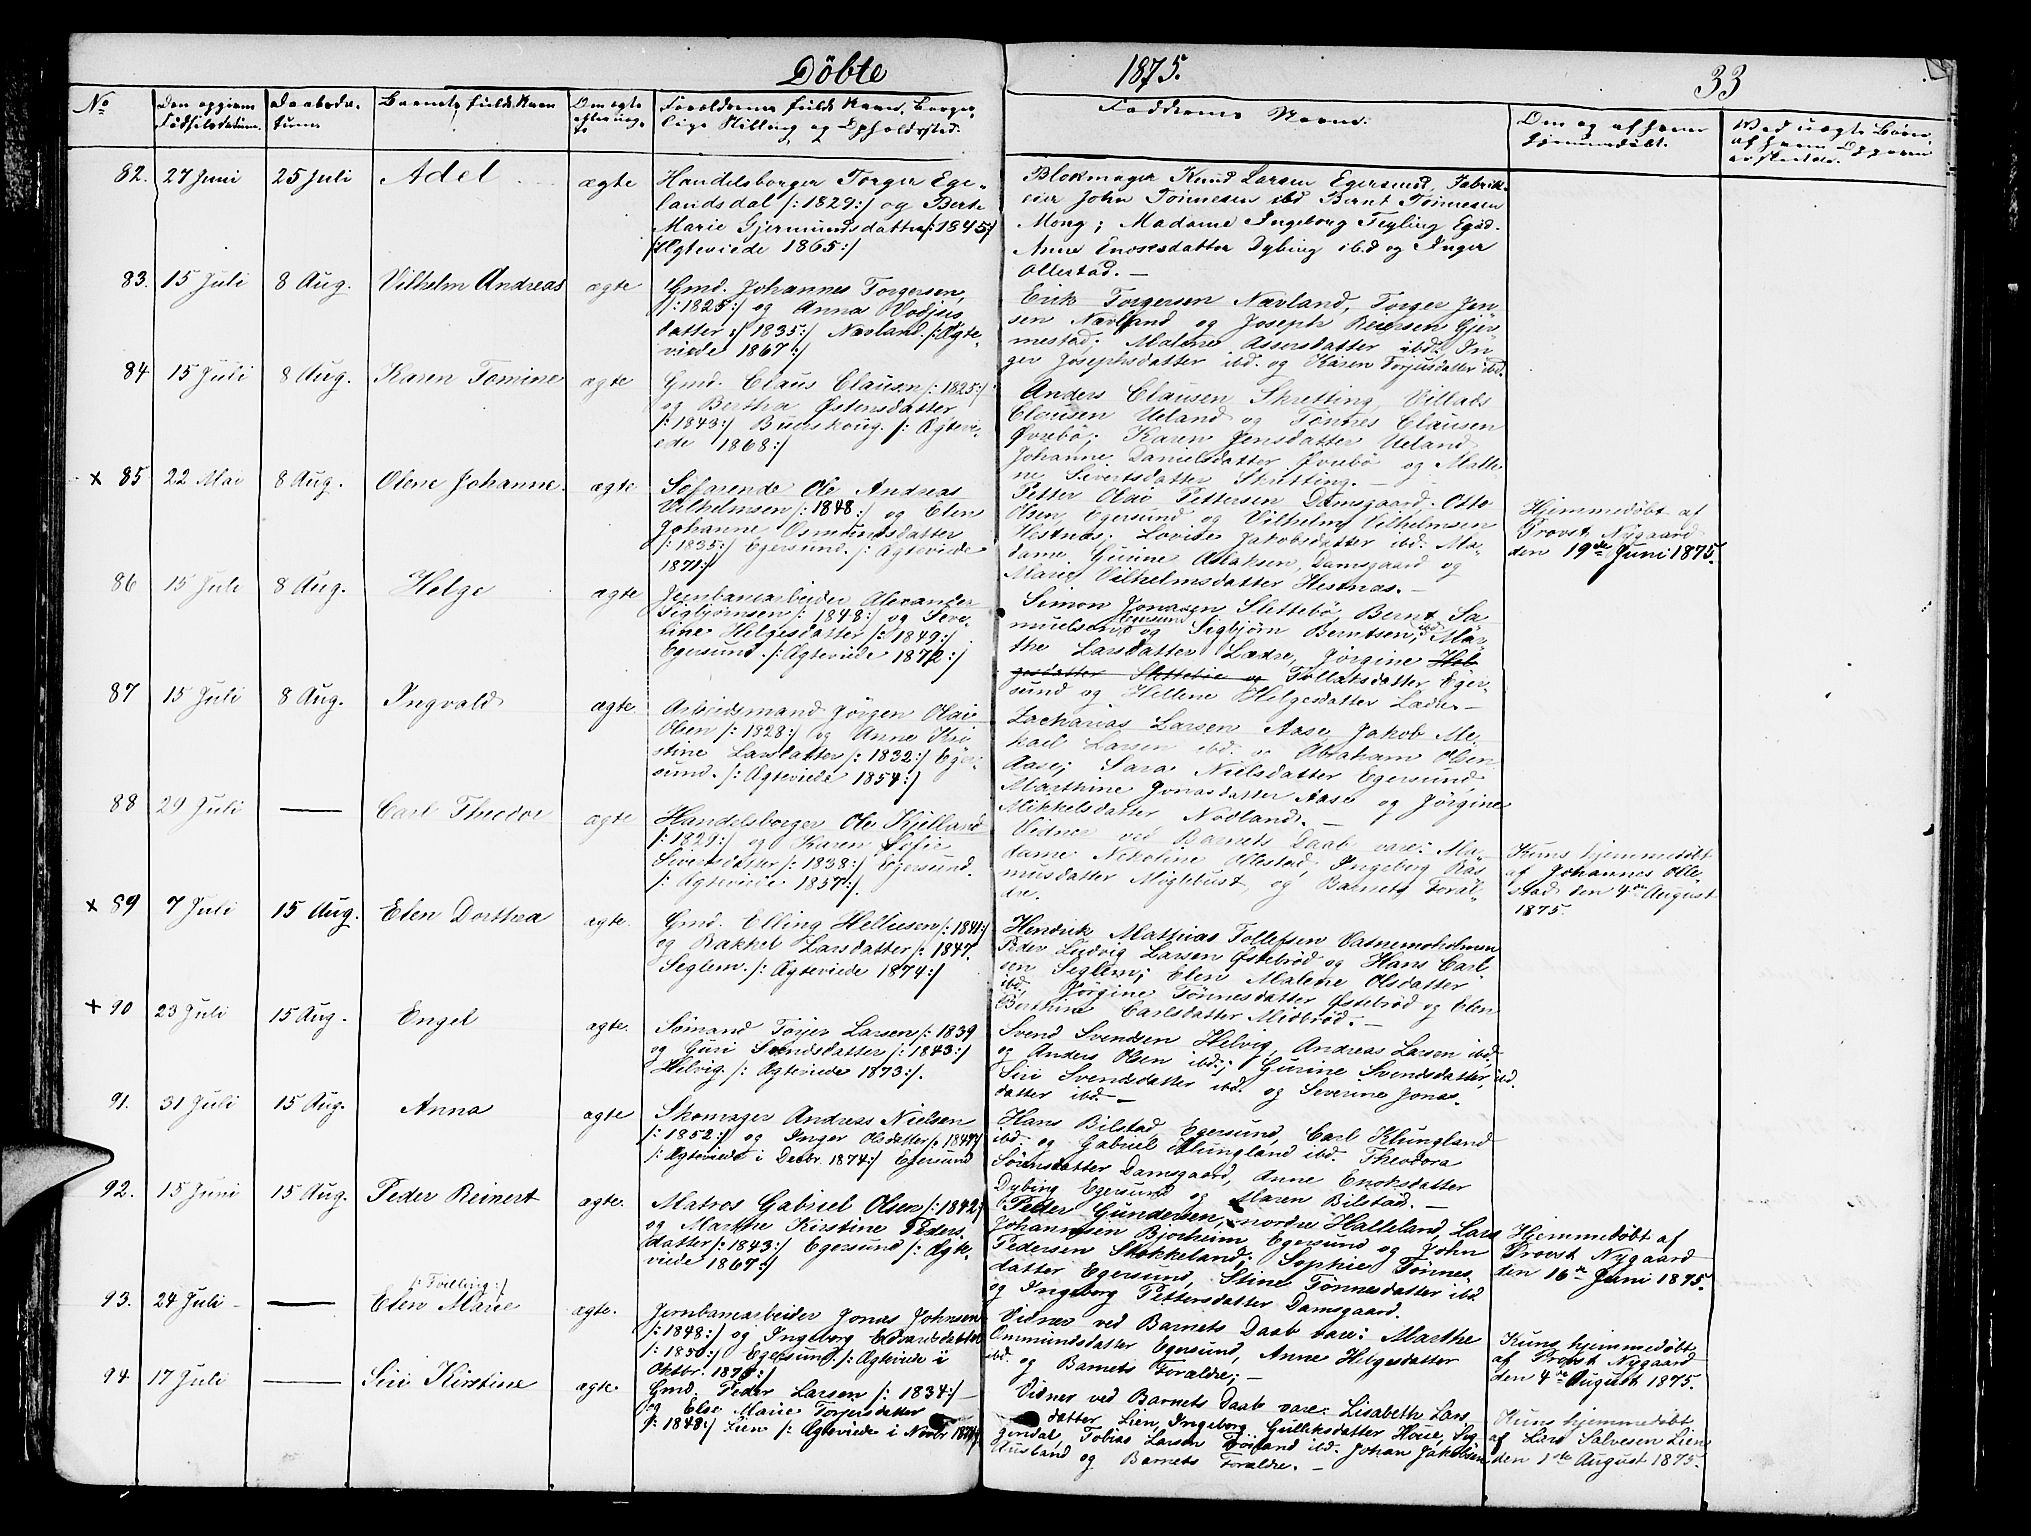 Döbte 1875. 33
No
Den opgivne Fødselsdatum.
Daabsda-
tum
Barnets fulde Navn
Om ægte eller uæg-
te
Forældrenes fulde Navn, Borger-
lige Stilling og Opholdssted.
Faddernes Navne.
Om og af hvem
hjemmedöbt.
Ved uægte Börn,
af hvem Opgaven
82. 27 Juni 25 Juli Adel ægte
Handelsborger Torger Ege-
landsdal /: 1829:/ og Berte
Marie Gjermundsdatter /: 1845:/
/: Ægteviede 1865:/
Blokmager Knud Larsen Egersund, Fabrik-
eier John Tönnesen ibd Bernt Tönnesen
Mong; Madame Ingeborg Feyling Egsd.
Anne Enoksdatter Dybing ibd og Inger
Ollestad. —
83. 15 Juli 8 Aug. Vilhelm Andreas ægte
Gmd. Johannes Torgersen,
/: 1825:/ og Anna
datter /: 1835:/ Nævland. /: Ægte-
viede 1867:/
Erik Torgersen Nævland, Torger Jen-
sen Nævland og Joseph Reiersen Gjer-
mestad; Malene Assersdatter ibd. In-
ger Josephsdatter ibd. og Karen Torjusdatter ibd.
84 15 Juli 8 Aug. Karen Tomine ægte
Gmd. Claus Clausen /: 1825:/
og Berthe Østensdatter
/: 1843:/ Buesskoug. /: Ægtevi-
ede 1868:/
Anders Clausen Skretting, Villads
Clausen Ueland og Tönnes Clausen
Øvrebö; Karen Jensdatter Ueland
Johanne Danielsdatter Øvrebö og Malle-
ne Sivertsdatter Skretting. —
x 85 22 Mai 8 Aug. Olene Johanne. ægte
Söfarende Ole Andreas
Vilhelmsen /: 1848:/ og Elen
Johanne Osmundsdatter
/: 1835:/ Egersund. /: Ægteviede
1871:/
Petter Olai Pettersen Damsgaard, Otto
Olsen, Egersund og Vilhelm Vilhelmsen
Hestnæs; Lovise Jakobsdatter ibd. Ma-
dame Gurine Aslaksen, Damsgaard og
Marie Vilhelmsdatter Hestnæs. —
Hjemmedöbt af
Provst Nygaard
den 19de Juni 1875.
86 15 Juli 8 Aug. Helge ægte
Jernbanearbeider Alexander
Sigbjörnsen /: 1848:/ og Seve-
rine Helgesdatter /: 1849:/
Egersund. /: Ægteviede 1872:/
Simon Jonasen Slettebö, Bernt Sa-
muelsen Egersund og Sigbjörn Berntsen, ibd. Mar-
the Larsdatter Lædre, Jörgine Hel-
gesdatter Slettebö og Tollaksdatter Eger-
sund og Hellene Helgesdatter Lædre —
87 15 Juli 8 Aug. Ingvald ægte
Arbeidsmand Jörgen Olai
Olsen /: 1828:/ og Anne Kri-
stine Larsdatter /: 1832:/ Eger-
sund. /: Ægteviede 1854:/
Zacharias Larsen Aase, Jakob Mi-
kael Larsen ibd. og Abraham Olsen
Aase; Sara Nielsdatter Egersund,
Marthine Jonasdatter Aase og Jörgine
Mikkelsdatter Nodland. —
88 29 Juli — Carl Theodor ægte
Handelsborger Ole Kjelland
/: 1829:/ og Karen Sofie
Sivertsdatter /: 1838:/ Egersund.
/: Ægteviede 1857:/.
Vidner ved Barnets Daab vare: Ma-
dame Nikoline Ollestad, Ingeborg Ras-
musdatter Miglebust, og Barnets Foræl-
dre.
Kuns hjemmedöbt
af Johannes Olle-
stad den 4de August
1875.
x 89 7 Juli 15 Aug. Elen Dorthea ægte.
Gmd. Elling Helliesen /: 1841:/
og Rakkel Larsdatter /: 1847.
Seglem. /: Ægteviede 1874:/
Henrik Mathias Tollefsen Vatnemoholmen
Peder Ludvig Larsen Østebröd og Hans Carl-
sen Seglem; Elen Malene Olsdatter
ibd. Jörgine Tönnesdatter Østebröd og Elen
Berthine Carlsdatter Midbröd. —
+ 90 23 Juli 15 Aug. Engel ægte.
Sömand Torjer Larsen /: 1839
og Guri Svendsdatter /: 1843:/
Helvig. /: Ægteviede 1873:/.
Svend Svendsen Helvig, Andreas Larsen ibd.
og Anders Olsen ibd.; Gurine Svendsdatter, ibd.
Siri Svendsdatter ibd. og Severine Jonas-
datter ibd. —
91. 31 Juli 15 Aug. Anna ægte
Skomager Andreas Nielsen
/: 1852:/ og Inger Olsdatter /: 1849:/
/: Ægteviede i Decbr. 1874:/ Egersund
Hans Bilstad Egersund, Carl Klungland
ibd. og Gabriel Klungland ibd. Theodora
Sörensdatter Damsgaard, Anne Enoksdatter
Dybing Egersund og Maren Bilstad. —
92. 15 Juni 15 Aug. Peder Reinert ægte.
Matros Gabriel Olsen /: 1842:/
og Marthe Kirstine Peders-
datter /: 1843:/ Egersund /: Ægte-
viede 1867:/
Petter Gundersen, nordre Halleland, Lars
Johannesen Bjorheim Egersund og John
Pedersen Stokkeland; Sophie Tönnes-
datter Egersund, Stine Tönnesdatter ibd
og Ingeborg Pettersdatter Damsgaard.
Hjemmedöbt af
Provst Nygaard
den 16de Juni 1875.
93. 24 Juli — Elen Marie /: Tvilling:/ ægte.
Jernbanearbeider Jonas Johnsen
/: 1848:/ og Ingeborg Edvardsdatter
/: 1850:/ Egersund. /: Ægteviede i
Oktbr.
Vidner ved Barnets Daab vare: Marthe
Ommundsdatter Egersund, Anne Helgesdatter
ibd. og Barnets Forældre; —
Kuns hjemmedöbt
af Provst Nygaard
den 4de August 1875.
94 17 Juli — Siri Kirstine ægte.
Gmd. Peder Larsen /: 1834:/
og Else Marie Torjersdatter
/: 1848:/ Lien /: Ægteviede i Novbr
Vidner ved Barnets Daab vare: Lisabeth Lars
datter Lien, Ingeborg Gulliksdatter Houe, Sig-
Tobias Larsen ibd. Johan Jakobsen
Husland og Barnets Forældre. —
Kuns hjemmedöbt
af Lars Salvesen Lien
den 1ste August 1875.